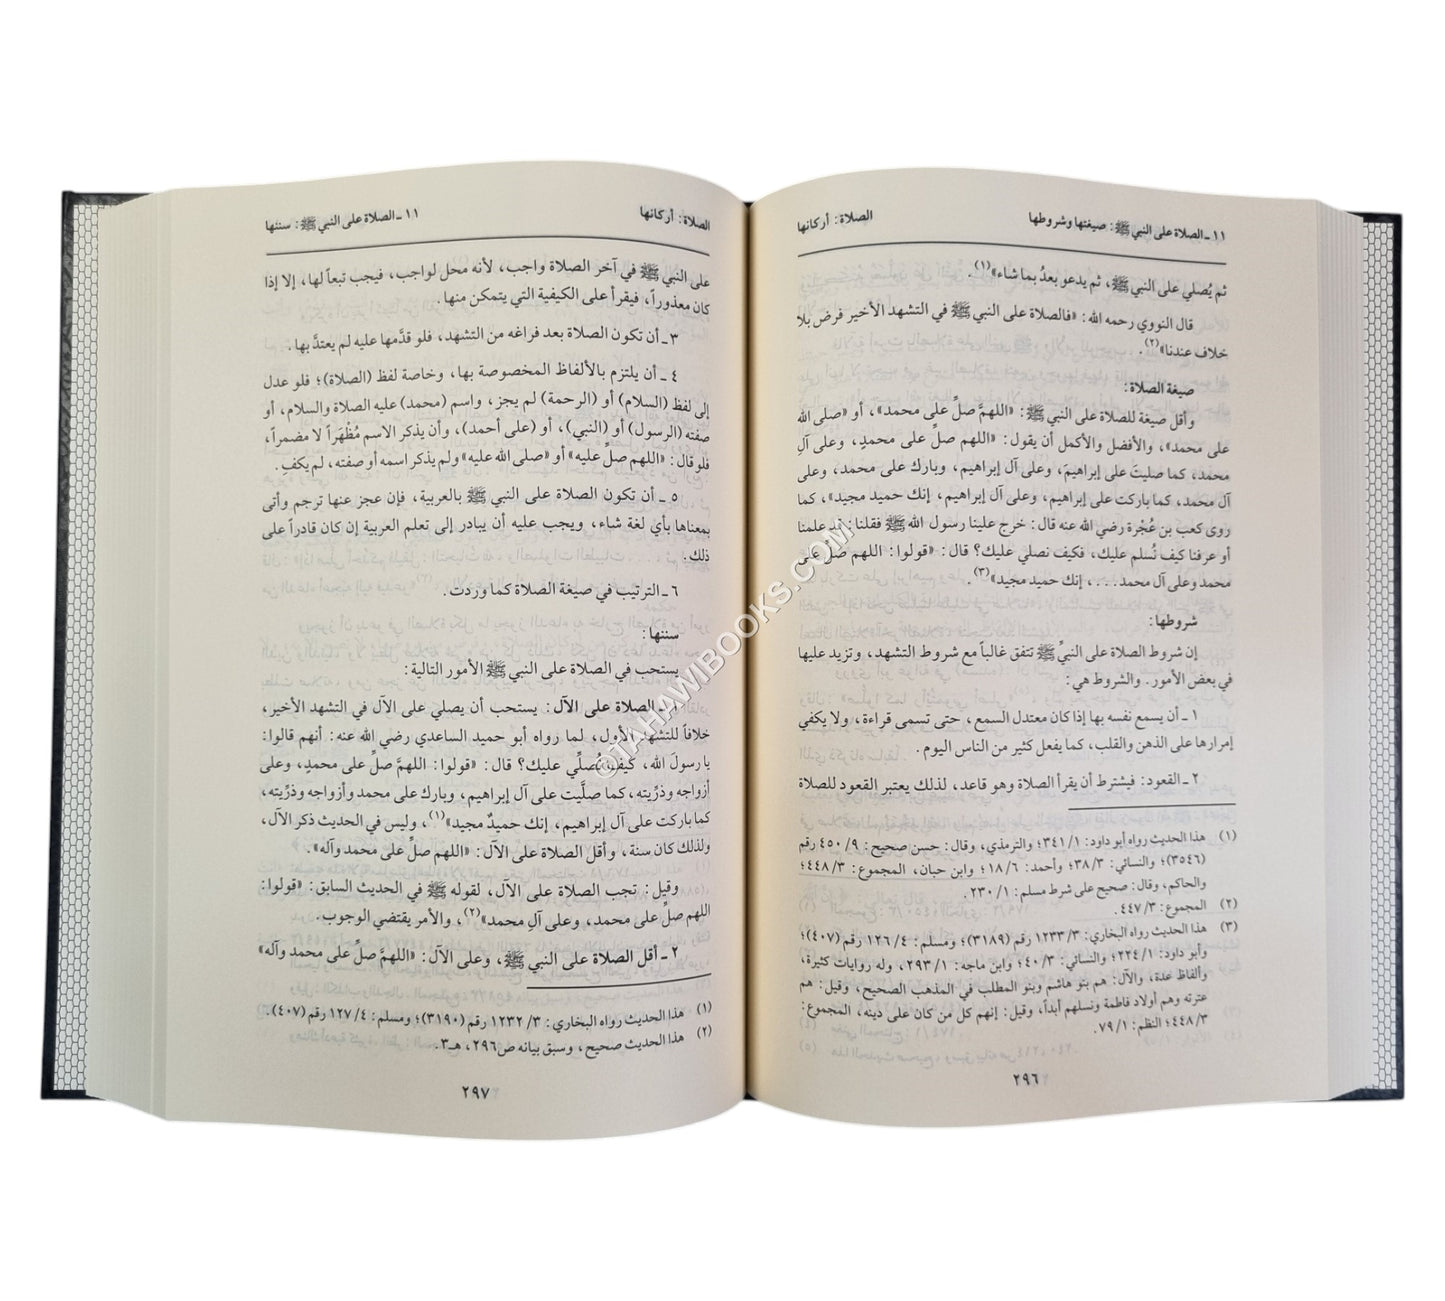 ١١ ـ الصلاة على النبي ﷺ : صيغتها وشروطها
الصلاة : أركانها
ثم يُصلي على النبي ﷺ ، ثم يدعو بعدُ بما شاء»(١).
قال النووي رحمه الله : «فالصلاة على النبي ﷺ في التشهد الأخير فرض بلا
خلاف عندنا»(٢).
صيغة الصلاة :
وأقل صيغة للصلاة على النبي ﷺ : «اللهمَّ صلِّ على محمد» ، أو «صلى الله
على محمد» ، والأفضل والأكمل أن يقول : «اللهم صلِّ على محمدٍ ، وعلى آلِ
محمد ، كما صليتَ على إبراهيمَ ، وعلى آل إبراهيم ، وبارك على محمد ، وعلى
آل محمد ، كما باركت على إبراهيم ، وعلى آل إبراهيم ، إنك حميد مجيد» ، كما
روى كعب بن عُجْرة رضي الله عنه قال : خرج علينا رسول الله ﷺ فقلنا : قد علمنا
أو عرفنا كيف نُسلم عليك ، فكيف نصلي عليك؟ قال : «قولوا : اللهم صل على
محمد وعلى آل محمد . . . ، إنك حميد مجيد»(٣).
شروطها :
إن شروط الصلاة على النبيِّ ﷺ تتفق غالباً مع شروط التشهد ، وتزيد عليها
في بعض الأمور . والشروط هي :
١ ـ أن يسمع نفسه بها إذا كان معتدل السمع ، حتى تسمى قراءة ، ولا يكفي
إمرارها على الذهن والقلب ، كما يفعل كثير من الناس اليوم .
٢ ـ القعود : فيشترط أن يقرأ الصلاة وهو قاعد ، لذلك يعتبر القعود للصلاة
(١) هذا الحديث رواه أبو داود : ٣٤١/١ ؛ والترمذي ، وقال : حسن صحيح : ٩/ ٤٥٠ رقم
(٣٥٤٦) ؛ والنسائي : ٣٨/٣ ؛ وأحمد : ١٨/٦ ؛ وابن حبان ، المجموع : ٤٤٨/٣ ؛
والحاكم ، وقال : صحيح على شرط مسلم : ٢٣٠/١ .
(٢) المجموع : ٤٤٧/٣ .
(٣) هذا الحديث رواه البخاري : ١٢٣٣/٣ رقم (٣١٨٩) ؛ ومسلم : ١٢٦/٤ رقم (٤٠٧) ؛
وأبو داود : ٢٢٤/١ ؛ والنسائي : ٤٠/٣ ؛ وابن ماجه : ٢٩٣/١ ، وله روايات كثيرة ،
وألفاظ عدة ، والآل : هم بنو هاشم وبنو المطلب في المذهب الصحيح ، وقيل : هم
عترته وهم أولاد فاطمة ونسلهم أبداً ، وقيل : إنهم كل من كان على دينه ، المجموع :
٤٤٨/٣ ؛ النظم : ٧٩/١ .
٢٩٦
الصلاة : أركانها
١١ ـ الصلاة على النبي ﷺ : سننها
على النبي ﷺ في آخر الصلاة واجب ، لأنه محل لواجب ، فيجب تبعاً لها ، إلا إذا
كان معذوراً ، فيقرأ على الكيفية التي يتمكن منها .
٣ ـ أن تكون الصلاة بعد فراغه من التشهد ، فلو قدَّمها عليه لم يعتدَّ بها .
٤ ـ أن يلتزم بالألفاظ المخصوصة بها ، وخاصة لفظ (الصلاة) ؛ فلو عدل
إلى لفظ (السلام) أو (الرحمة) لم يجز ، واسم (محمد) عليه الصلاة والسلام ، أو
صفته (الرسول) أو (النبي) ، أو (على أحمد) ، وأن يذكر الاسم مُظْهَراً لا مضمراً ،
فلو قال : «اللهم صلِّ عليه» أو «صلى الله عليه» ولم يذكر اسمه أو صفته ، لم يكفِ .
٥ ـ أن تكون الصلاة على النبي ﷺ بالعربية ، فإن عجز عنها ترجم وأتى
بمعناها بأي لغة شاء ، ويجب عليه أن يبادر إلى تعلم العربية إن كان قادراً على
ذلك .
٦ ـ الترتيب في صيغة الصلاة كما وردت .
سننها :
يستحب في الصلاة على النبي ﷺ الأمور التالية :
١ ـ الصلاة على الآل : يستحب أن يصلي على الآل في التشهد الأخير ،
خلافاً للتشهد الأول ، لما رواه أبو حميد الساعدي رضي الله عنه : أنهم قالوا :
يا رسولَ الله ، كيف نُصلِّي عليك؟ قال : «قولوا : اللهمَّ صلِّ على محمدٍ ، وعلى
أزواجه وذرِّيته ، كما صلَّيت على آل إبراهيم ، وبارك على محمد وأزواجه وذرِّيته ،
كما باركت على آل إبراهيم ، إنك حميدٌ مجيد»(١) ، وليس في الحديث ذكر الآل ،
ولذلك كان سنة ، وأقل الصلاة على الآل : «اللهمَّ صلِّ على محمد وآله» .
وقيل : تجب الصلاة على الآل ، لقوله ﷺ في الحديث السابق : «قولوا :
اللهم صلِّ على محمد ، وعلى آلِ محمد»(٢) ، والأمر يقتضي الوجوب .
٢ ـ أقل الصلاة على النبي ﷺ ، وعلى الآل : «اللهمَّ صلِّ على محمد وآله»
(١) هذا الحديث رواه البخاري : ٣/ ١٢٣٢ رقم (٣١٩٠) ؛ ومسلم : ٤/ ١٢٧ رقم (٤٠٧) .
(٢) هذا الحديث صحيح ، وسبق بيانه ص٢٩٦ ، هـ٣ .
٢٩٧
©TAHAWIBOOKS.COM